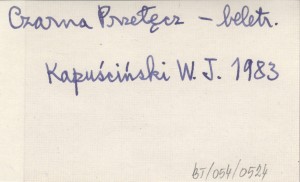 Czarna Przełęcz – beletr.
Kapuściński W. J. 1983
BT/054/0524